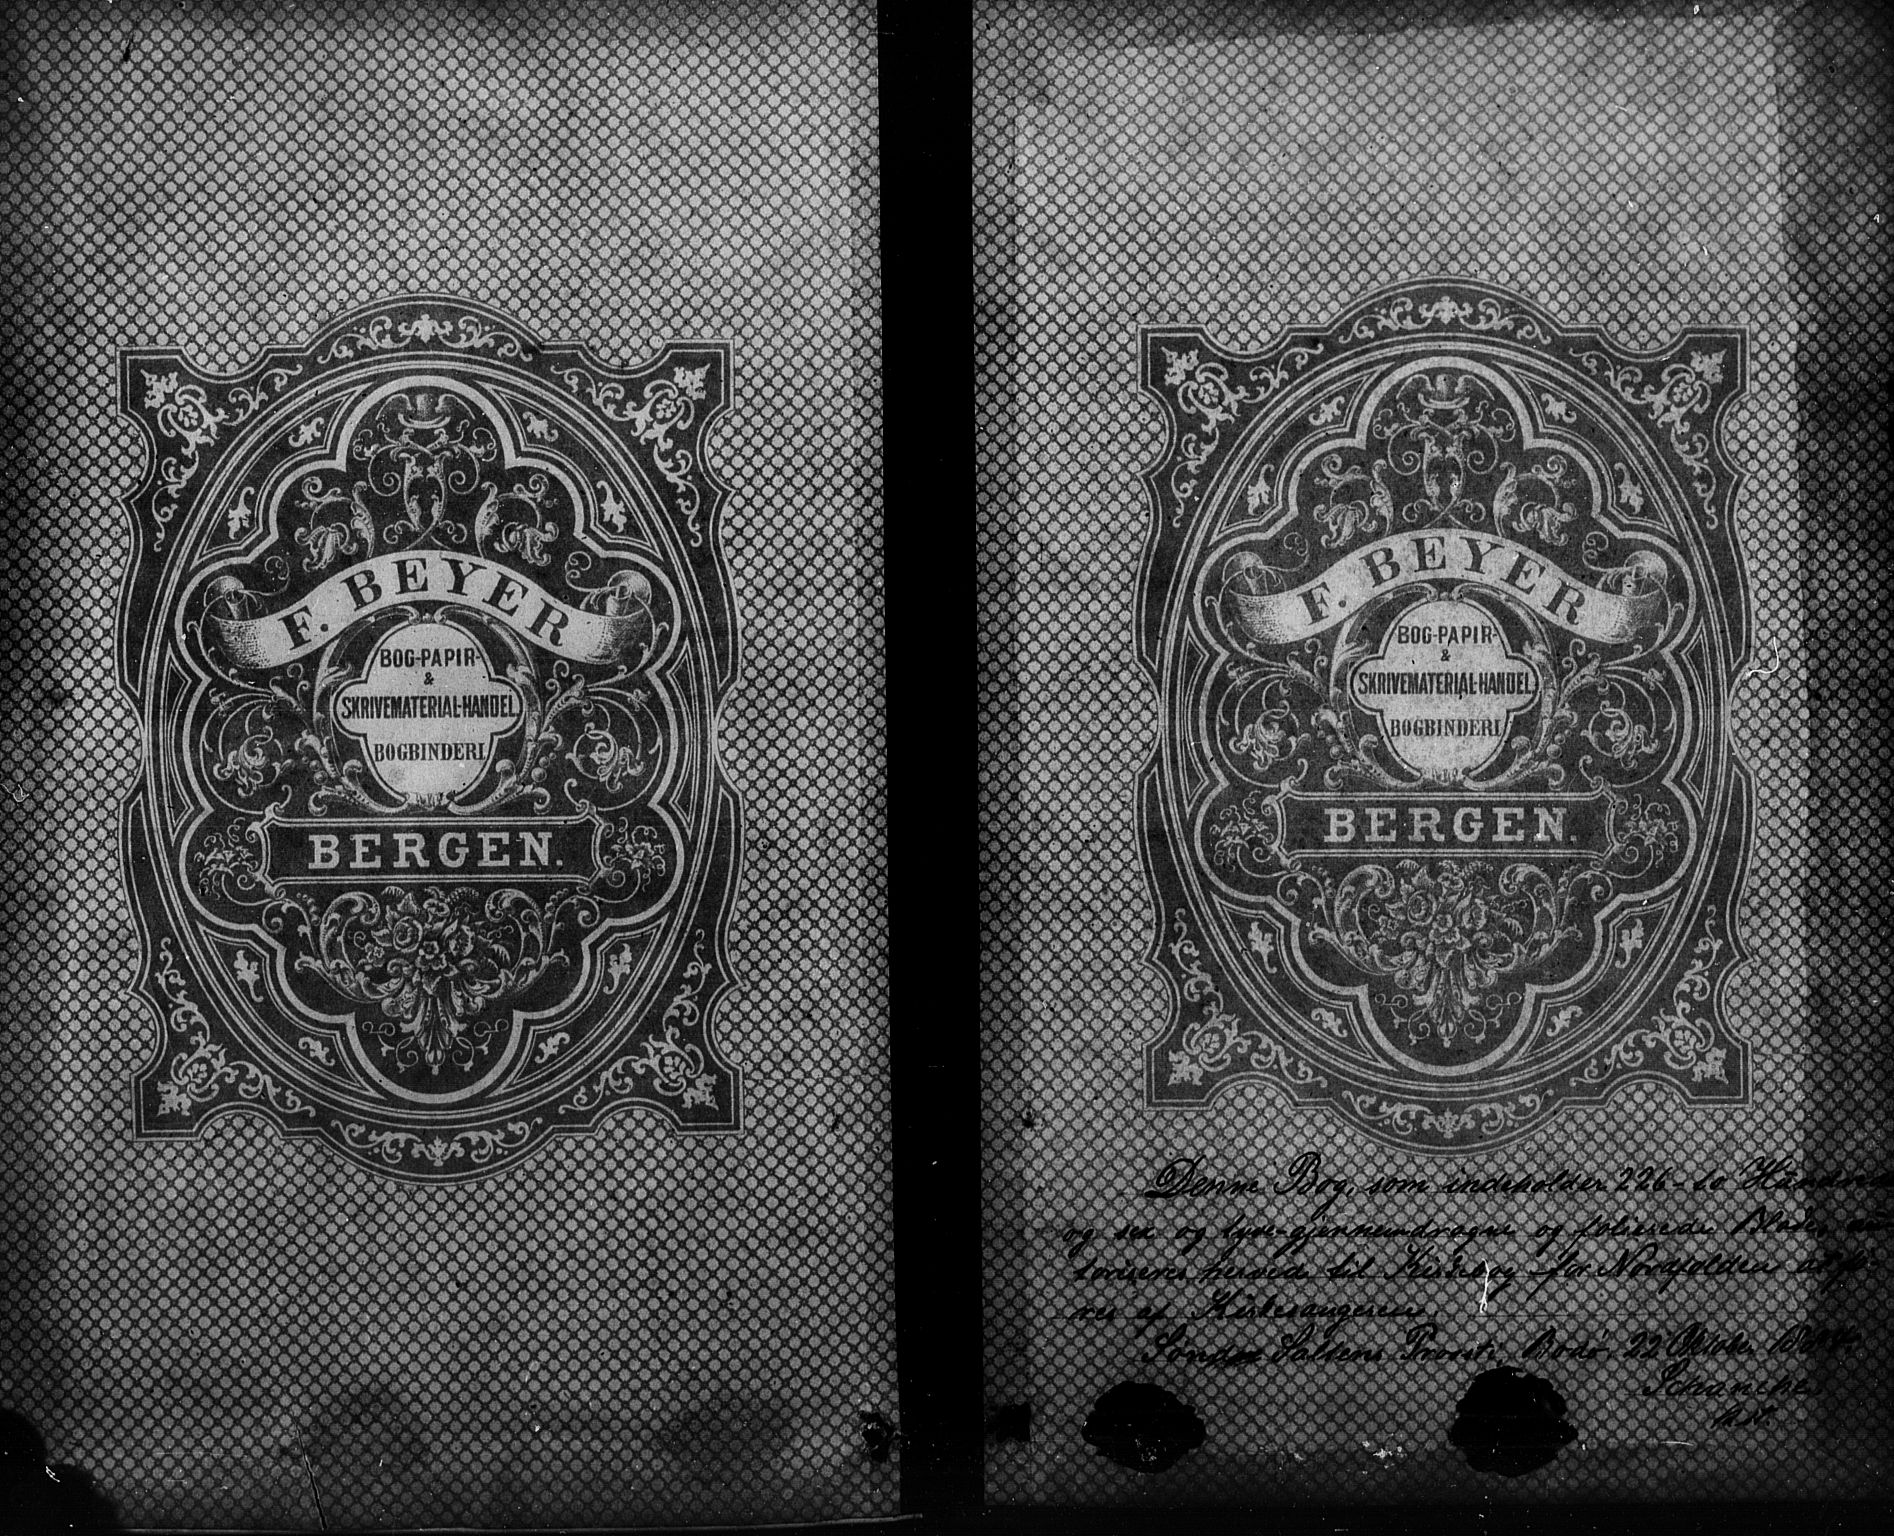 F. BEYER
BOG-PAPIR-
&
SKRIVEMATERIAL-HANDEL
BOGBINDERI
BERGEN.
F. BEYER
BOG-PAPIR-
&
SKRIVEMATERIAL-HANDEL
BOGBINDERI
BERGEN.
Denne Bog, som indeholder 226 - to Hundrede
og sex og tyve - gjennemdragne og folierede Blade, au
toriseres herved til Kirkebog for Nordfolden at fø-
res af Kirkesangeren.
Søndre Saltens Provsti, Bodø 22 Oktober